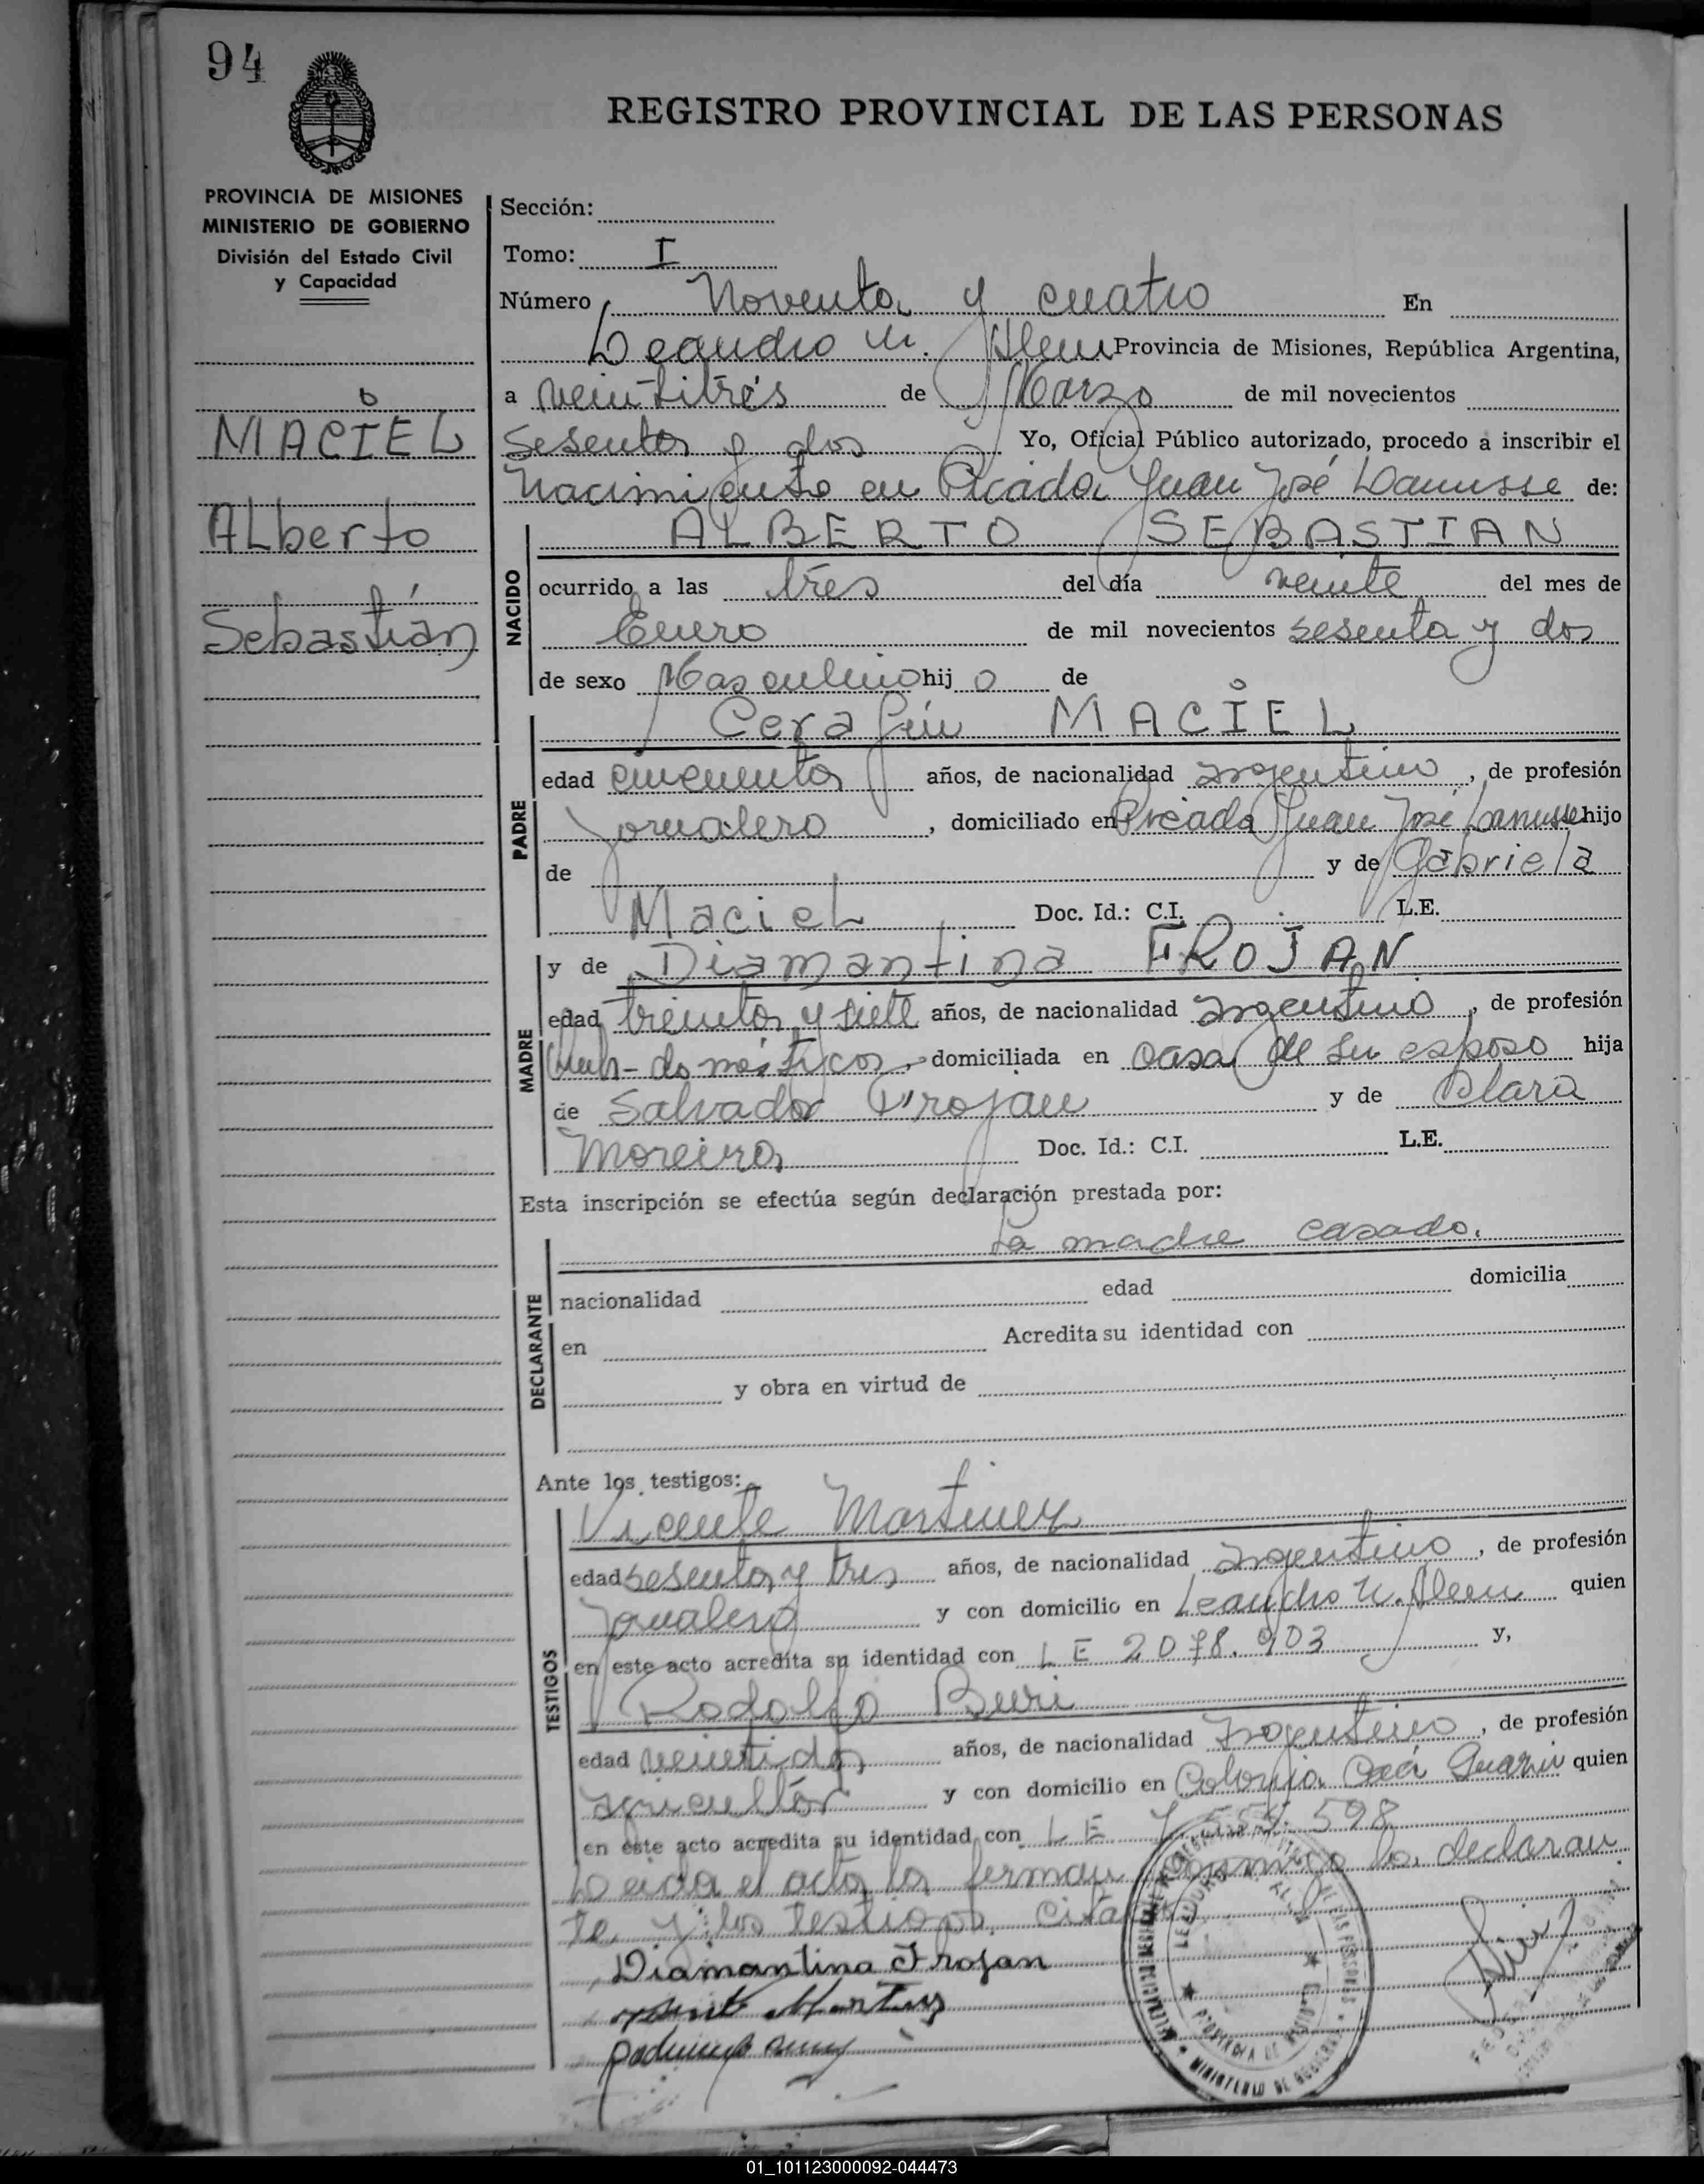 94
REGISTRO PROVINCIAL DE LAS PERSONAS
PROVINCIA DE MISIONES
MINISTERIO DE GOBIERNO
División del Estado Civil
y Capacidad
MACIEL
Alberto
Sebastián
Sección:
Tomo: I
Número Noventa y cuatro En
Leandro N. Alem Provincia de Misiones, República Argentina,
a veintitrés de Marzo de mil novecientos
sesenta y dos Yo, Oficial Público autorizado, procedo a inscribir el
Nacimiento en Picada Juan José Lanusse de:
NACIDO
ALBERTO SEBASTIAN
ocurrido a las tres del día veinte del mes de
Enero de mil novecientos sesenta y dos
de sexo Masculino hij o de
PADRE
Cerafín MACIEL
edad cincuenta años, de nacionalidad argentino, de profesión
Jornalero, domiciliado en Picada Juan José Lanusse hijo
de y de Gabriela
Maciel Doc. Id.: C.I. L.E.
MADRE
y de Diamantina FROJAN
edad treinta y siete años, de nacionalidad argentino, de profesión
domésticos, domiciliada en casa de su esposo hija
de Salvador Frojan y de Clara
Moreira Doc. Id.: C.I. L.E.
Esta inscripción se efectúa según declaración prestada por:
DECLARANTE
la madre casada.
nacionalidad edad domicilia
en Acredita su identidad con
y obra en virtud de
Ante los testigos:
TESTIGOS
Vicente Martinez
edad sesenta y tres años, de nacionalidad argentino, de profesión
Jornalero y con domicilio en Leandro N. Alem quien
en este acto acredita su identidad con L E 2078.903 y,
Rodolfo Buri
edad veintidos años, de nacionalidad Argentino, de profesión
agricultór y con domicilio en Colonia Caá Guazú quien
en este acto acredita su identidad con L E 7.554.598
Leida el acta la firman conmigo la declaran
te y los testigos citados
Diamantina Frojan
MINISTERIO DE GOBIERNO
PROVINCIA DE MISIONES
01_101123000092-044473